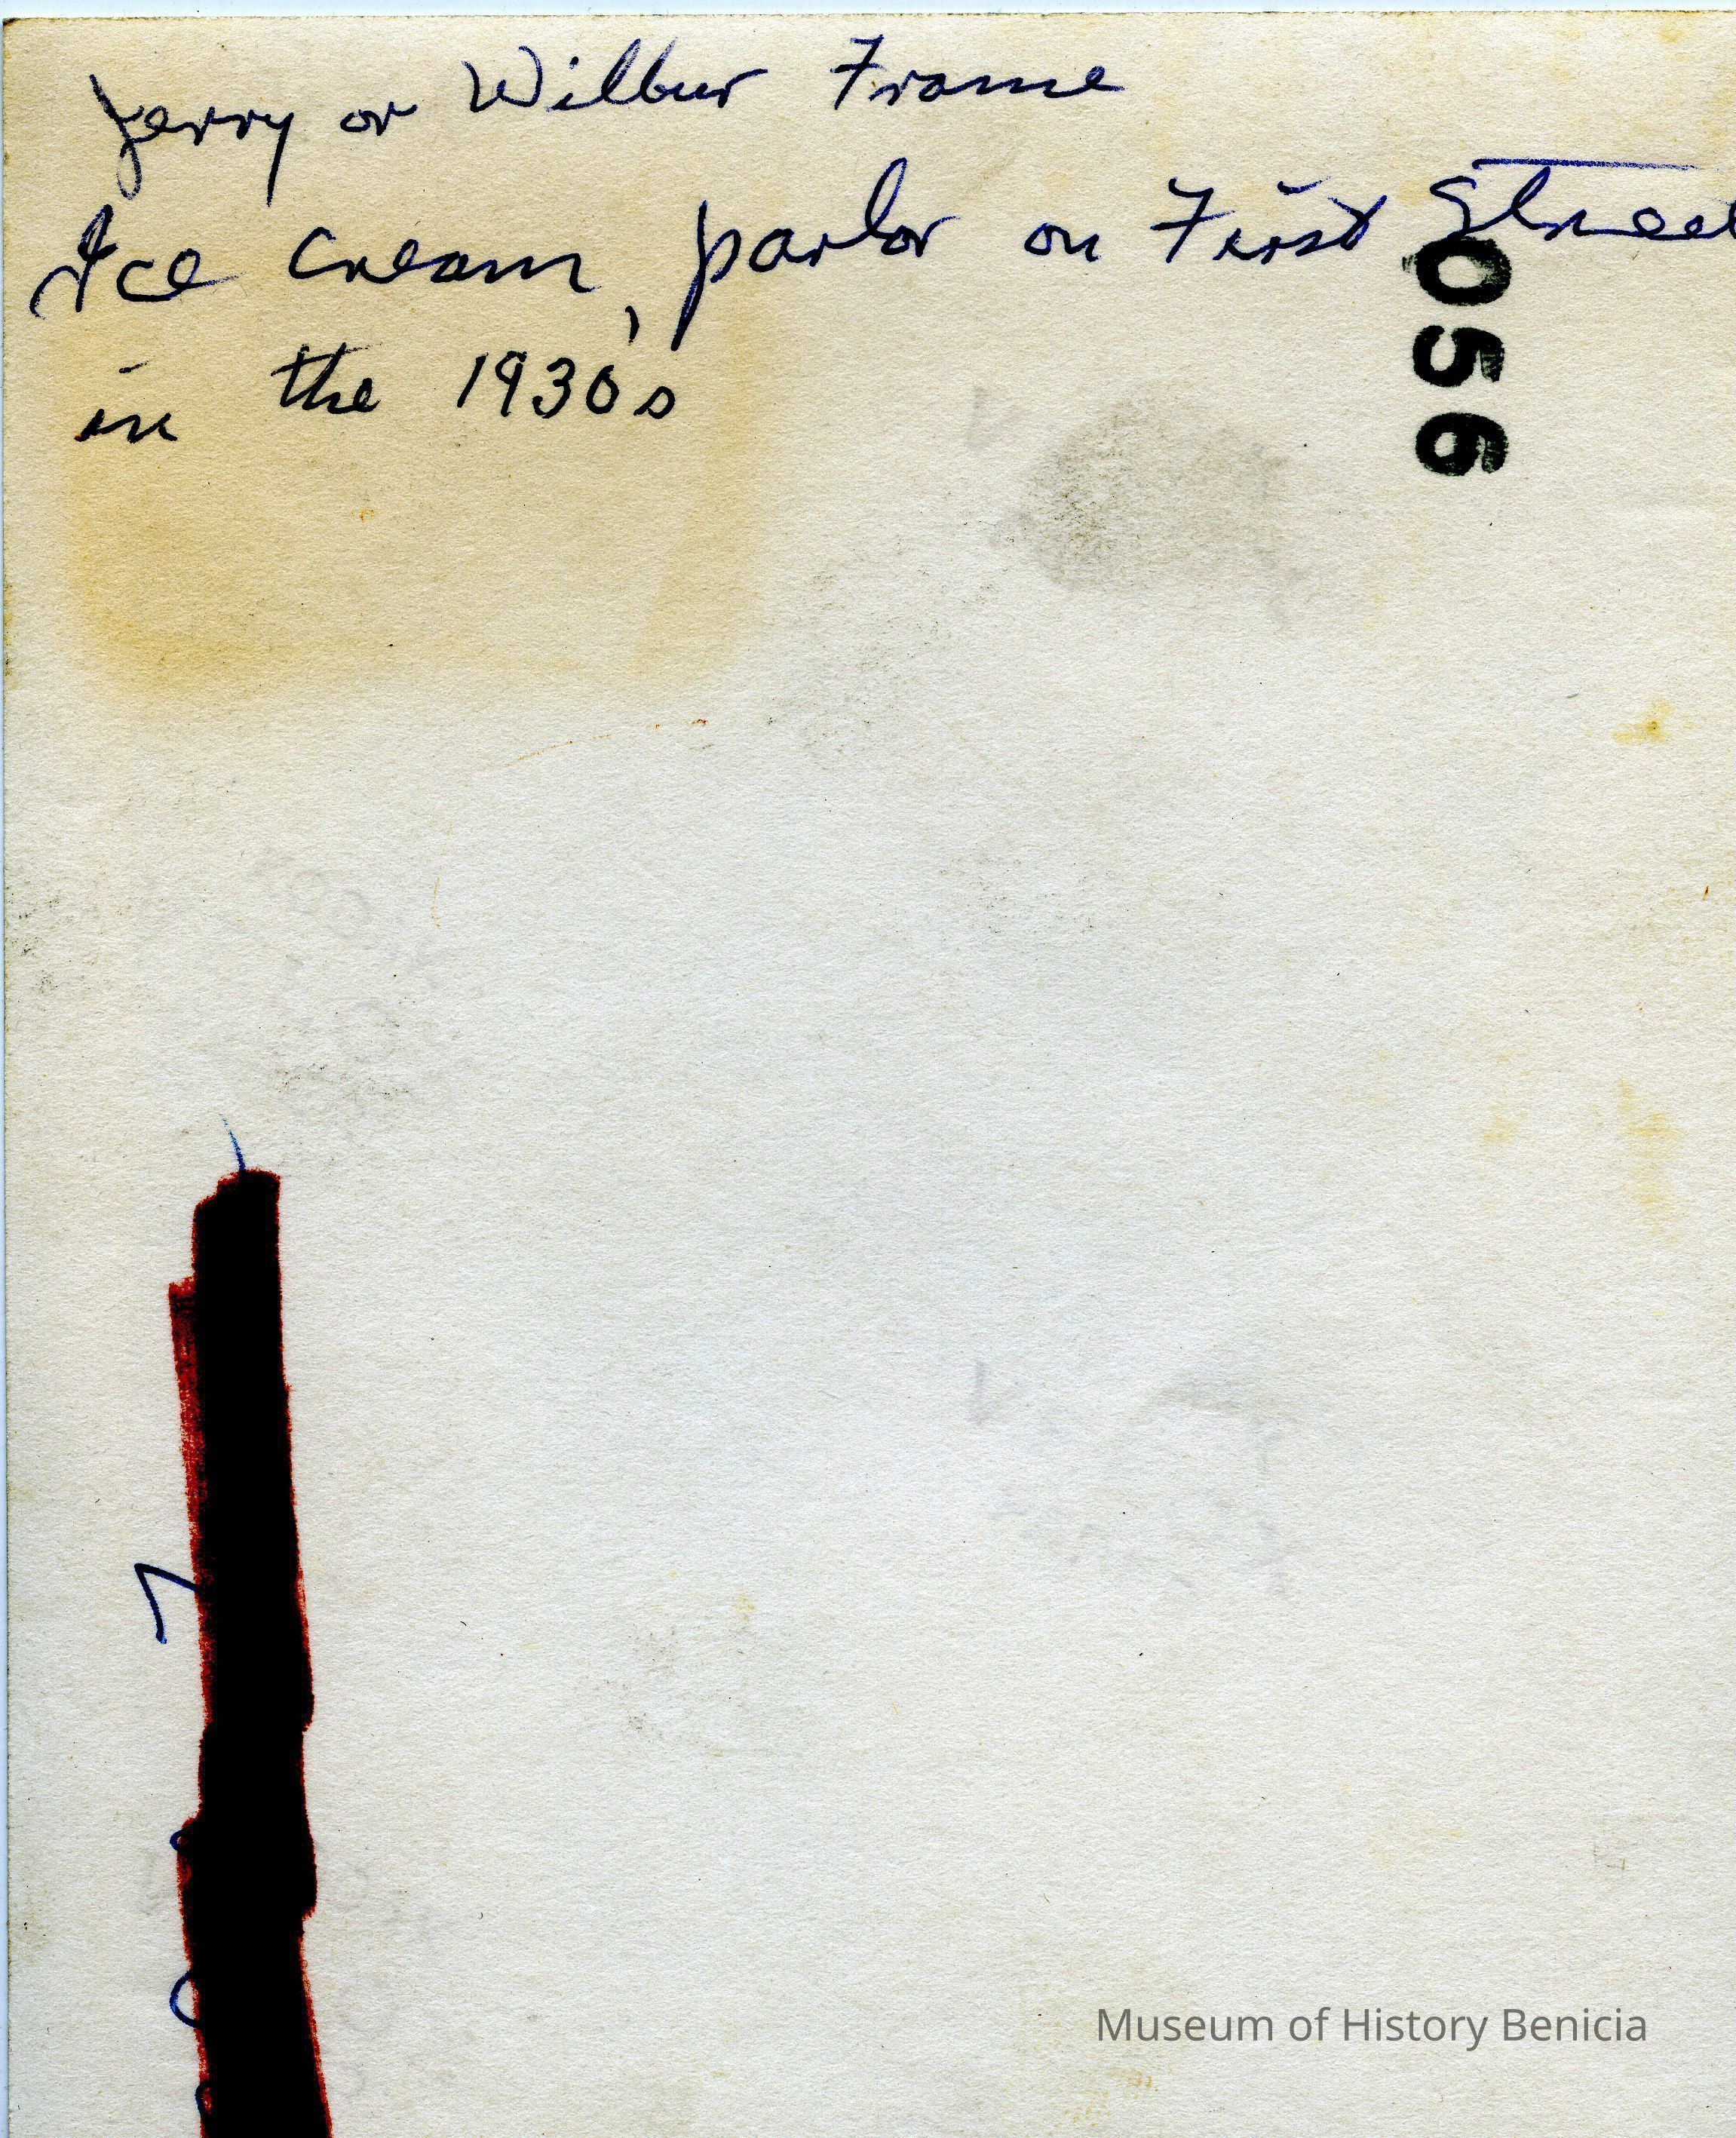 Jerry or Wilbur Frame
Ice cream, parlor on First Street
in the 1930's
0956
Museum of History Benicia